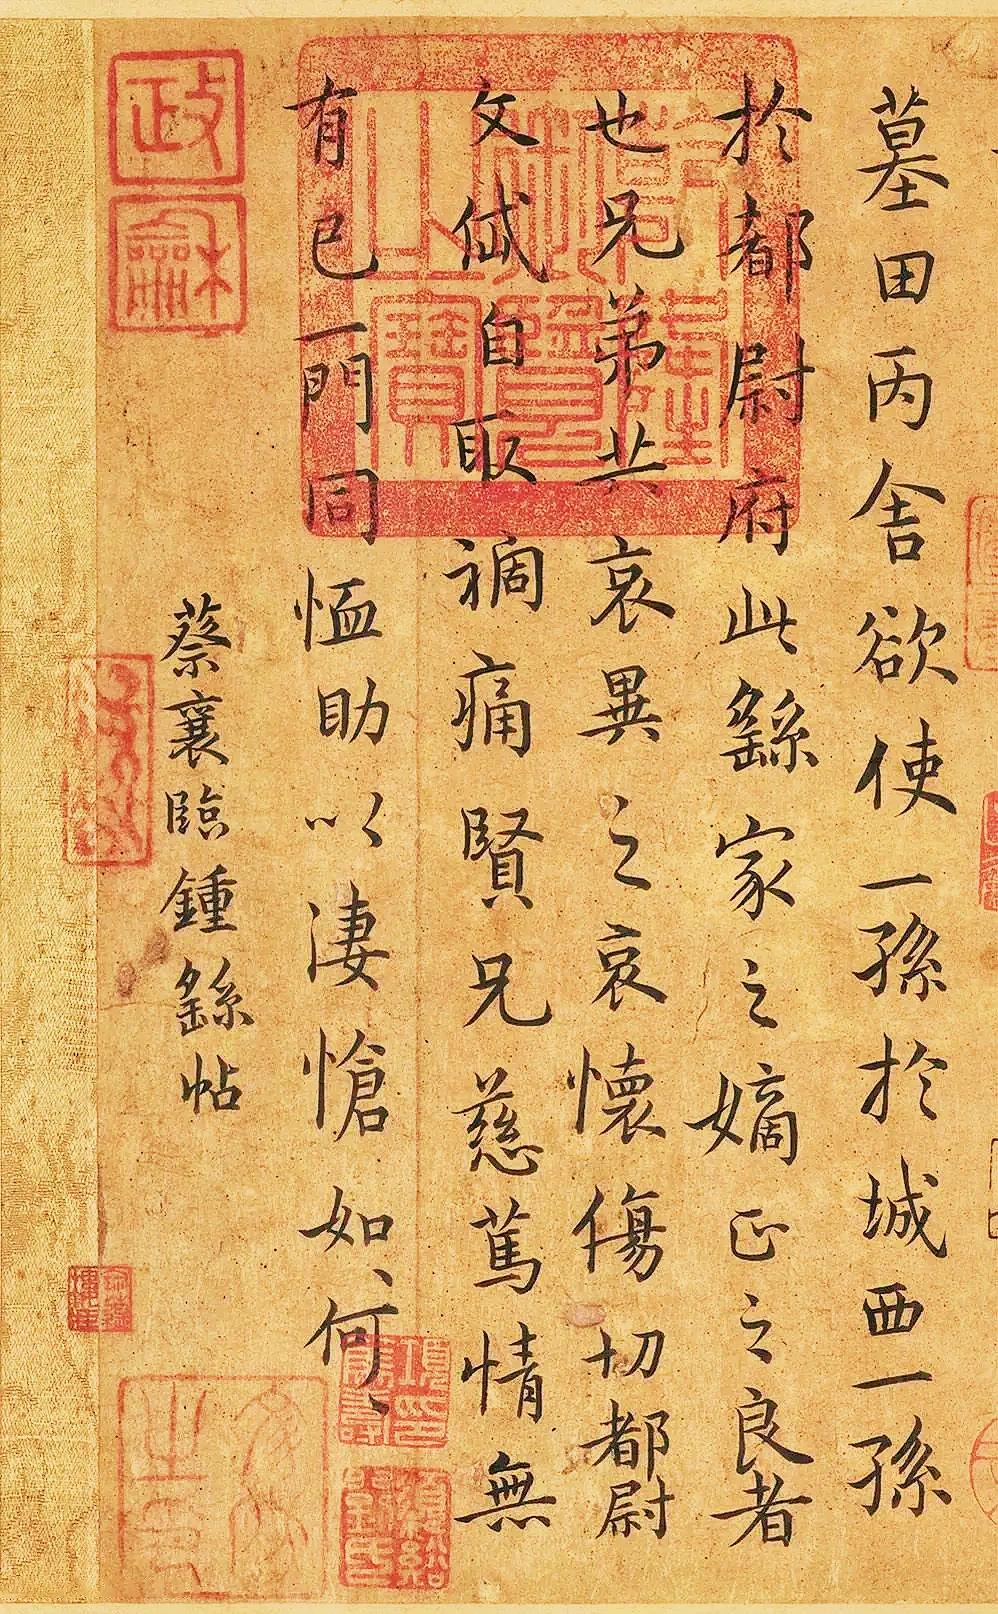 墓田丙舍欲使一孫於城西一孫
於都尉府此繇家之嫡正之良者
也兄弟共哀異之哀懷傷切都尉
文俶自取禍痛賢兄慈篤情無
有已一門同恤助以悽愴如、何、
蔡襄臨鍾繇帖
政龢